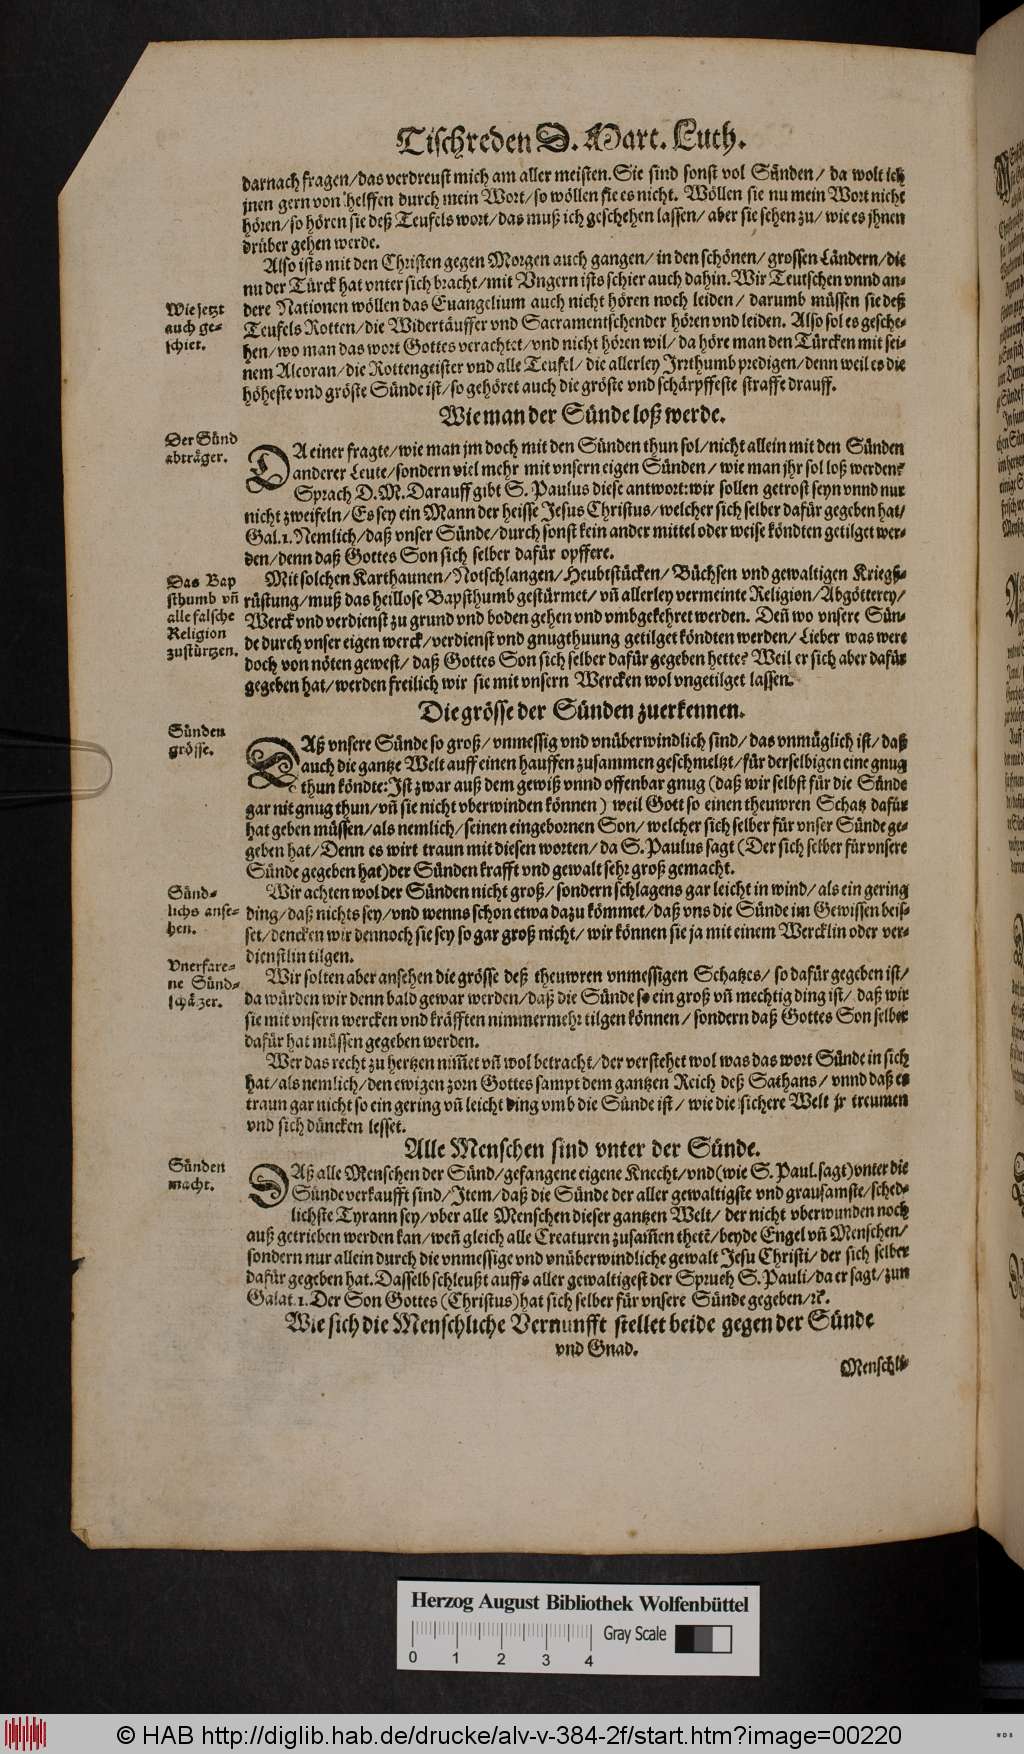 Tischreden D. Mart. Luth.
darnach fragen/das verdreust mich am aller meisten. Sie sind sonst vol Sünden/ da wolt ich
jnen gern von helffen durch mein Wort/so wöllen sie es nicht. Wöllen sie nu mein Wort nicht
hören/so hören sie deß Teufels wort/das muß ich geschehen lassen/aber sie sehen zu/wie es jhnen
drüber gehen werde.
Also ists mit den Christen gegen Morgen auch gangen/in den schönen/grossen Ländern/die
nu der Türck hat vnter sich bracht/mit Vngern ists schier auch dahin. Wir Teutschen vnnd an-
Wie jetzt
auch ge-
schiet.
dere Nationen wöllen das Euangelium auch nicht hören noch leiden/ darumb müssen sie deß
Teufels Rotten/die Widertäuffer vnd Sacramentschender hören vnd leiden. Also sol es gesche-
hen/wo man das wort Gottes verachtet/vnd nicht hören wil/da höre man den Türcken mit sei-
nem Alcoran/die Rottengeister vnd alle Teufel/ die allerley Irrthumb predigen/denn weil es die
höheste vnd gröste Sünde ist/so gehöret auch die gröste vnd schärpffeste straffe drauff.
Wie man der Sünde loß werde.
Der Sünd
abträger.
DA einer fragte/wie man jm doch mit den Sünden thun sol/nicht allein mit den Sünden
anderer Leute/sondern viel mehr mit vnsern eigen Sünden/ wie man jhr sol loß werden?
Sprach D. M. Darauff gibt S. Paulus diese antwort: wir sollen getrost seyn vnnd nur
nicht zweifeln/Es sey ein Mann der heisse Jesus Christus/welcher sich selber dafür gegeben hat/
Gal. 1. Nemlich/daß vnser Sünde/durch sonst kein ander mittel oder weise köndten getilget wer-
den/denn daß Gottes Son sich selber dafür opffere.
Das Bap
sthumb vn̄
alle falsche
Religion
zustürtzen.
Mit solchen Karthaunen/Notschlangen/Heubtstücken/ Büchsen vnd gewaltigen Kriegß-
rüstung/muß das heillose Bapsthumb gestürmet/vn̄ allerley vermeinte Religion/Abgötterey/
Werck vnd verdienst zu grund vnd boden gehen vnd vmbgekehret werden. Den̄ wo vnsere Sün-
de durch vnser eigen werck/verdienst vnd gnugthuung getilget köndten werden/Lieber was were
doch von nöten gewest/ daß Gottes Son sich selber dafür gegeben hette? Weil er sich aber dafür
gegeben hat/werden freilich wir sie mit vnsern Wercken wol vngetilget lassen.
Die grösse der Sünden zuerkennen.
Sünden
grösse.
DAß vnsere Sünde so groß/vnmessig vnd vnüberwindlich sind/das vnmüglich ist/daß
auch die gantze Welt auff einen hauffen zusammen geschmeltzt/für derselbigen eine gnug
thun köndte: Ist zwar auß dem gewiß vnnd offenbar gnug (daß wir selbst für die Sünde
gar nit gnug thun/vn̄ sie nicht vberwinden können) weil Gott so einen theuwren Schatz dafür
hat geben müssen/als nemlich/seinen eingebornen Son/welcher sich selber für vnser Sünde ge-
geben hat/Denn es wirt traun mit diesen worten/da S. Paulus sagt (Der sich selber für vnsere
Sünde gegeben hat) der Sünden krafft vnd gewalt sehr groß gemacht.
Sünd-
lichs anse-
hen.
Wir achten wol der Sünden nicht groß/sondern schlagens gar leicht in wind/als ein gering
ding/daß nichts sey/vnd wenns schon etwa dazu kömmet/daß vns die Sünde im Gewissen beis-
set/dencken wir dennoch sie sey so gar groß nicht/wir können sie ja mit einem Wercklin oder ver-
dienstlin tilgen.
Vnerfare-
ne Sünd-
schätzer.
Wir solten aber ansehen die grösse deß theuwren vnmessigen Schatzes/ so dafür gegeben ist/
da würden wir denn bald gewar werden/daß die Sünde so ein groß vn̄ mechtig ding ist/ daß wir
sie mit vnsern wercken vnd kräfften nimmermehr tilgen können/ sondern daß Gottes Son selber
dafür hat müssen gegeben werden.
Wer das recht zu hertzen nim̄et vn̄ wol betracht/der verstehet wol was das wort Sünde in sich
hat/als nemlich/den ewigen zorn Gottes sampt dem gantzen Reich deß Sathans/ vnnd daß es
traun gar nicht so ein gering vn̄ leicht ding vmb die Sünde ist/ wie die sichere Welt jr treumen
vnd sich düncken lesset.
Alle Menschen sind vnter der Sünde.
Sünden
macht.
DAß alle Menschen der Sünd/gefangene eigene Knecht/vnd (wie S. Paul. sagt) vnter die
Sünde verkaufft sind/Item/daß die Sünde der aller gewaltigste vnd grausamste/sched-
lichste Tyrann sey/vber alle Menschen dieser gantzen Welt/ der nicht vberwunden noch
auß getrieben werden kan/wen̄ gleich alle Creaturen zusam̄en thetē/beyde Engel vn̄ Menschen/
sondern nur allein durch die vnmessige vnd vnüberwindliche gewalt Jesu Christi/ der sich selber
dafür gegeben hat. Dasselb schleußt auffs aller gewaltigest der Spruch S. Pauli/da er sagt/zun
Galat. 1. Der Son Gottes (Christus) hat sich selber für vnsere Sünde gegeben/ꝛc.
Wie sich die Menschliche Vernunfft stellet beide gegen der Sünde
vnd Gnad.
Menschli-
Herzog August Bibliothek Wolfenbüttel
Gray Scale
0 1 2 3 4
© HAB http://diglib.hab.de/drucke/alv-v-384-2f/start.htm?image=00220